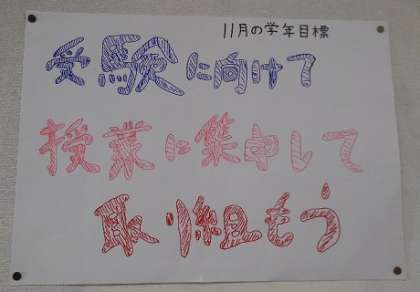 11月の学年目標
受験に向けて
授業に集中して
取り組もう